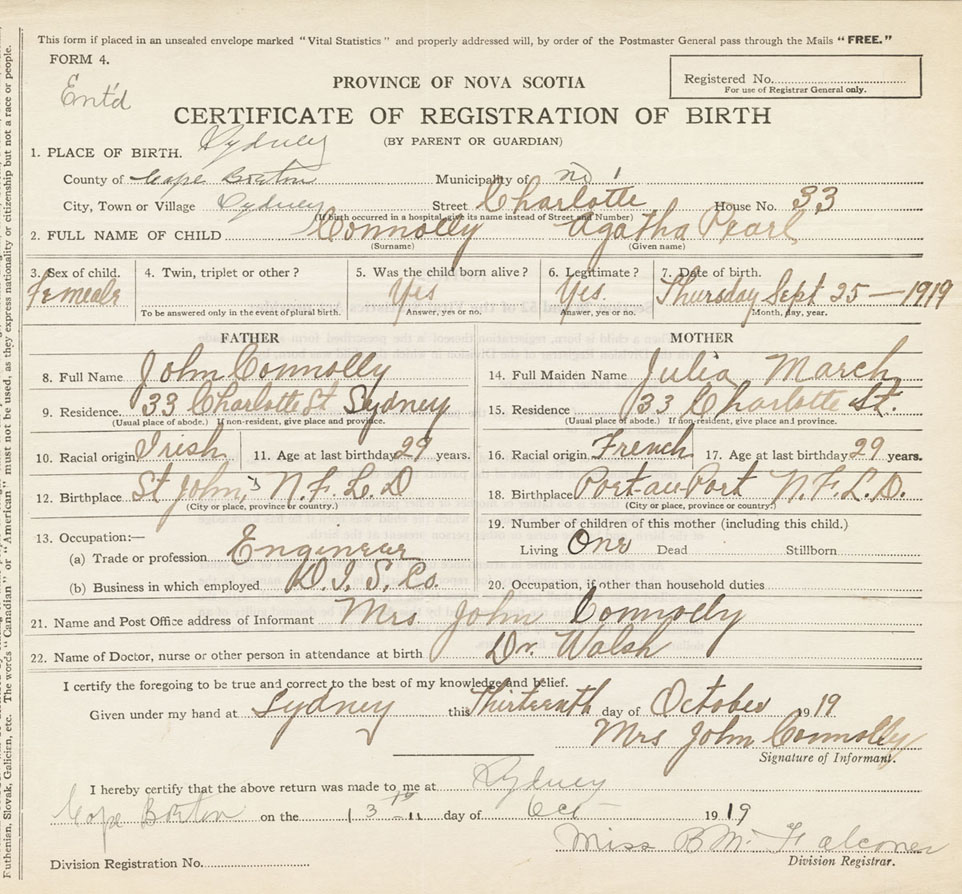 This form if placed in an unsealed envelope marked "Vital Statistics" and properly addressed will, by order of the Postmaster General pass through the Mails "FREE."
FORM 4.
Ent'd
PROVINCE OF NOVA SCOTIA
Registered No.
For use of Registrar General only.
CERTIFICATE OF REGISTRATION OF BIRTH
(BY PARENT OR GUARDIAN)
1. PLACE OF BIRTH. Sydney
County of Cape Breton Municipality of
City, Town or Village Sydney Street Charlotte House No. 33
(If birth occurred in a hospital, give its name instead of Street and Number)
2. FULL NAME OF CHILD Connolly Agatha Pearl
(Surname) (Given name)
3. Sex of child. 4. Twin, triplet or other? 5. Was the child born alive? 6. Legitimate? 7. Date of birth.
femeale Yes Yes. Thursday Sept 25 - 1919
To be answered only in the event of plural birth. Answer, yes or no. Answer, yes or no. Month, day, year.
FATHER MOTHER
8. Full Name John Connolly 14. Full Maiden Name Julia March
9. Residence. 33 Charlotte St Sydney 15. Residence 33 Charlotte St.
(Usual place of abode.) If non-resident, give place and province. (Usual place of abode.) If non-resident, give place and province.
10. Racial origin Irish 11. Age at last birthday 29 years. 16. Racial origin French 17. Age at last birthday 29 years.
12. Birthplace St John,s N.F.L.D 18. Birthplace Port-au-Port N.F.L.D.
(City or place, province or country.) (City or place, province or country.)
13. Occupation:— 19. Number of children of this mother (including this child.)
(a) Trade or profession Engineer Living One Dead Stillborn
(b) Business in which employed D.I.S. Co. 20. Occupation, if other than household duties
21. Name and Post Office address of Informant Mrs John Connolly
22. Name of Doctor, nurse or other person in attendance at birth Dr. Walsh
I certify the foregoing to be true and correct to the best of my knowledge and belief.
Given under my hand at Sydney this Thirteenth day of October 1919
Mrs John Connolly
Signature of Informant.
I hereby certify that the above return was made to me at Sydney
Cape Breton on the 13th day of Oct 1919
Miss B Mc Falconer
Division Registrar.
Division Registration No.
Ruthenian, Slovak, Galicien, etc. The words "Canadian" or "American" must not be used, as they express nationality or citizenship but not a race or people.